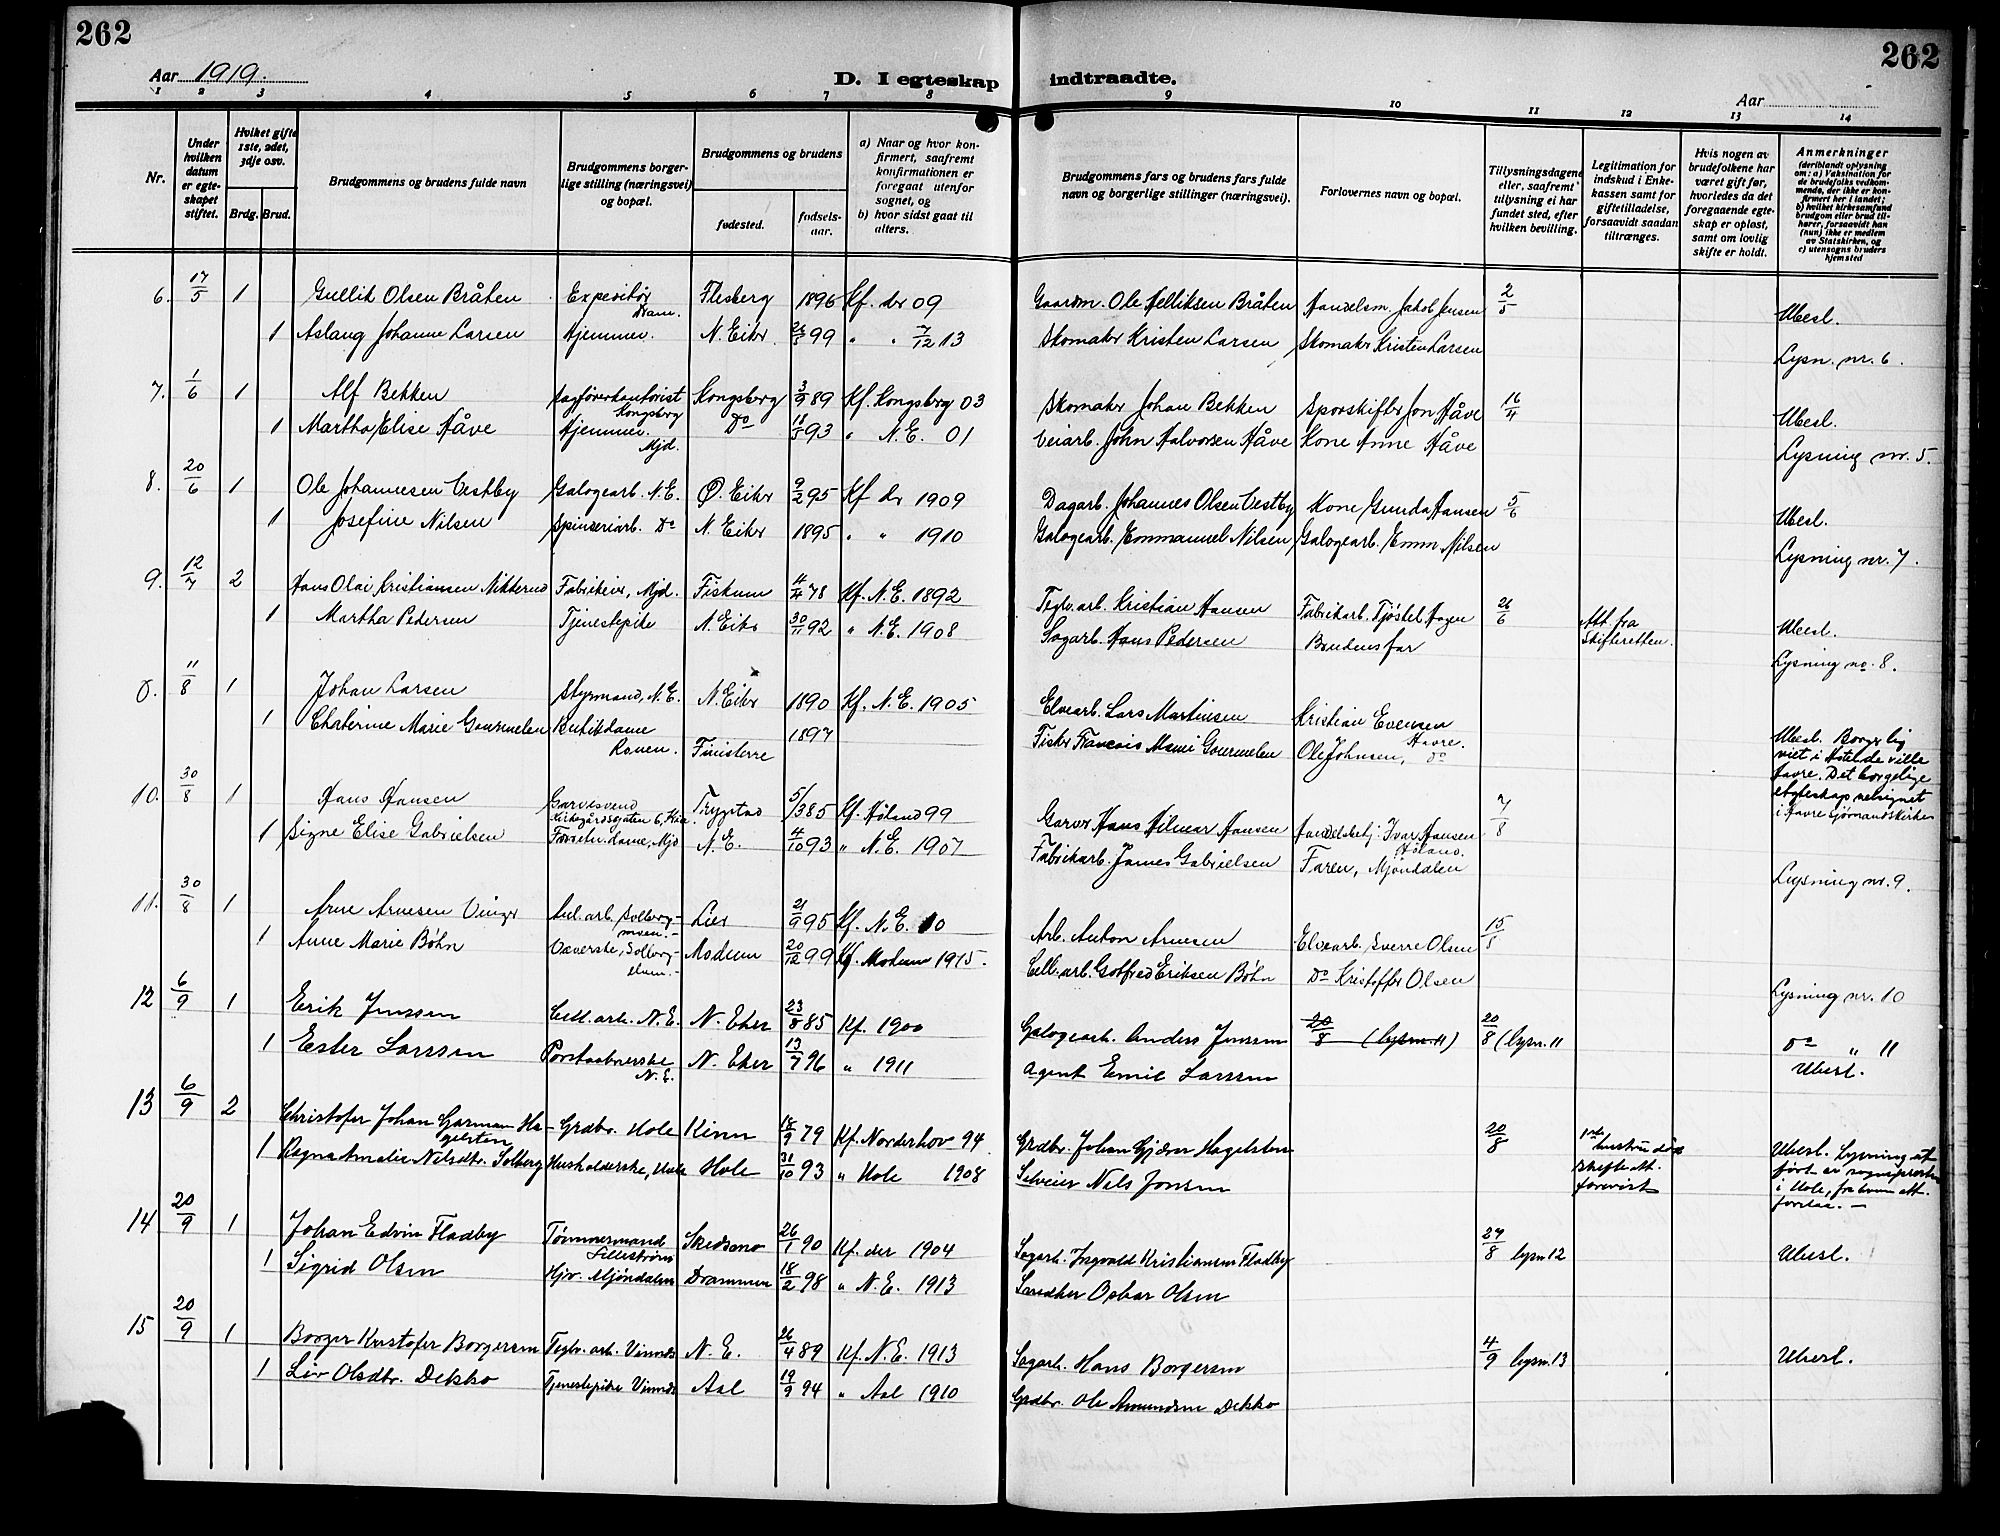 262
262
Aar 1919.
D. I egteskap indtraadte.
Aar
1 2 3 4 5 6 7 8 9 10 11 12 13 14
Nr.
Under hvilken datum er egteskapet stiftet.
Hvilket gifte 1ste, 2det, 3dje osv.
Brdg. Brud.
Brudgommens og brudens fulde navn
Brudgommens borgerlige stilling (næringsvei) og bopæl.
Brudgommens og brudens
fødested.
fødselsaar.
a) Naar og hvor konfirmert, saafremt konfirmationen er foregaat utenfor sognet, og
b) hvor sidst gaat til alters.
Brudgommens fars og brudens fars fulde navn og borgerlige stillinger (næringsvei).
Forlovernes navn og bopæl.
Tillysningsdagene eller, saafremt tillysning ei har fundet sted, efter hvilken bevilling.
Legitimation for indskud i Enkekassen samt for giftetilladelse, forsaavidt saadan tiltrænges.
Hvis nogen av brudefolkene har været gift før, hvorledes da det foregaaende egteskap er opløst, samt om lovlig skifte er holdt.
Anmerkninger
(deriblandt oplysning om: a) Vaksination for de brudefolks vedkommende, der ikke er konfirmert her i landet; b) hvilket kirkesamfund brudgom eller brud tilhører, forsaavidt han (hun) ikke er medlem av Statskirken, og c) utensogns bruders hjemsted
6. 17/5 1 Gullik Olsen Bråten Expeditør Dram. Flesberg 1896 Kf. der 09 Gaardm. Ole Helliksen Bråten Handelsm. Jakob Jensen 2/5 Ubesl.
1 Aslaug Johanne Larsen Hjemme. N. Eiker 99 " " 7/12 13 Skomaker Kristen Larsen Skomaker Kristen Larsen Lysn. nr. 6.
7. 1/6 1 Alf Bekken Sagførerkontorist Kongsberg Kongsberg 3/9 89 Kf. Kongsberg 03 Skomaker Johan Bekken Sporskifter Jon Håve 16/ Ubesl.
1 Martha Elise Håve Hjemme. Mjd. Do 16/5 93 " N.E. 01 Veiarb. John Halvorsen Håve Kone Anne Håve Lysning nr. 5.
8. 20/6 1 Ole Johannesen Vestby Galogearb. N.E. Ø. Eiker 9/2 95 Kf der 1909 Dagarb. Johannes Olsen Vestby Kone Gunda Hansen 5/6 Ubesl.
1 Josefine Nilsen Spinneriarb. Do N. Eiker 1895 " " 1910 Galogearb. Emmanuel Nilsen Galogearb. Emm Nilsen Lysning nr. 7.
9. 12/7 2 Hans Olai Kristiansen Nikkerud Fabrikeier, Mjd. Fiskum 4/4 78 Kf. N.E. 1892 Teglv.arb. Kristian Hansen Fabrikarb. Tjøstel Hagen 26/6 Att. fra Skifteretten. Ubesl.
1 Martha Pedersen Tjenestepike N. Eiker 30/11 92 " N.E. 1908 Sagarb. Hans Pedersen Brudens far Lysning no. 8.
0. 11/8 1 Johan Larsen Styrmand, N.E. N. Eiker 1890 Kf. N.E. 1905 Elvearb. Lars Martinsen Kristian Evensen Havre.
1 Chaterine Marie Gourmelen Butikdame Rouen. Finisterre 1897 Fisker Francois Marie Gourmelen Ole Johnsen, do
Ubesl. Borgerlig viet i Hotel de ville Havre. Det borgelige ekteskap velsignet i Havre Sjømandskirke
10. 30/8 1 Hans Hansen Garvesvend Kirkegårdsgaten 6, Kria. Trygstad 5/3 85 Kf. Høland 99 Garver Hans Hilmar Hansen Handelsbetj. Ivar Hansen Høland. 7/8
1 Signe Elise Gabrielsen Forretn.dame, Mjd N.E. 4/10 93 " N.E. 1907 Fabrikarb. James Gabrielsen Faren, Mjøndalen Lysning nr. 9.
11. 30/8 1 Arne Arnesen Vinger Cel. arb. Solbergmoen. Lier 21/9 95 Kf. N.E. 10 Arb. Anton Arnesen Elvearb. Sverre Olsen 15/8
1 Anne Marie Bøhn Væverske, Solbergelven. Modum 20/12 99 Kf. Modum 1915. Cell.arb. Gotfred Eriksen Bøhn Do Kristoffer Olsen Lysning nr. 10
12 6/9 1 Erik Jenssen Cell. arb. N.E. N. Eker 23/8 85 Kf. 1900 Galogearb. Anders Jenssen 20/8 (lysn. 11) 20/8 (lysn. 11 do " 11
1 Ester Larssen N.E. N. Eker 13/7 96 " 1911 Agent Emil Larssen Ubesl.
13 6/9 2 Christofer Johan Garmann Hagelsten Grdbr. Hole Kinn 18/9 79 Kf. Norderhov 94 Grdbr. Johan Gjører Hagelsten 20/8 1ste hustru død skifteatt. forevist
1 Ragna Amalie Nilsdtr. Solberg Husholderske, Hole Hole 31/10 93 " Hole 1908 Selveier Nils Jonsen
Ubesl. Lysning utført av sognepresten i Hole, fra hvem att. forelaa. —
14 20/9 1 Johan Edvin Fladby Tømmermand Lillestrøm Skedsmo 26/1 90 Kf. der 1904 Sagarb. Ingvald Kristiansen Fladby 27/8 lysn 12 Ubesl.
1 Sigrid Olsen Hjv. Mjøndalen Drammen 18/2 98 " N.E. 1913 Snedker Oskar Olsen
15 20/9 1 Borger Kristofer Borgersen Teglv. arb. Vinnes N.E. 26/4 89 Kf. N.E. 1913 Sagarb. Hans Borgersen 4/9 lysn. 13 Ubesl.
1 Liv Olsdtr. Dekko Tjenestepike Vinnes Aal 19/9 94 " Aal 1910 Grdbr. Ole Amundsen Dekko